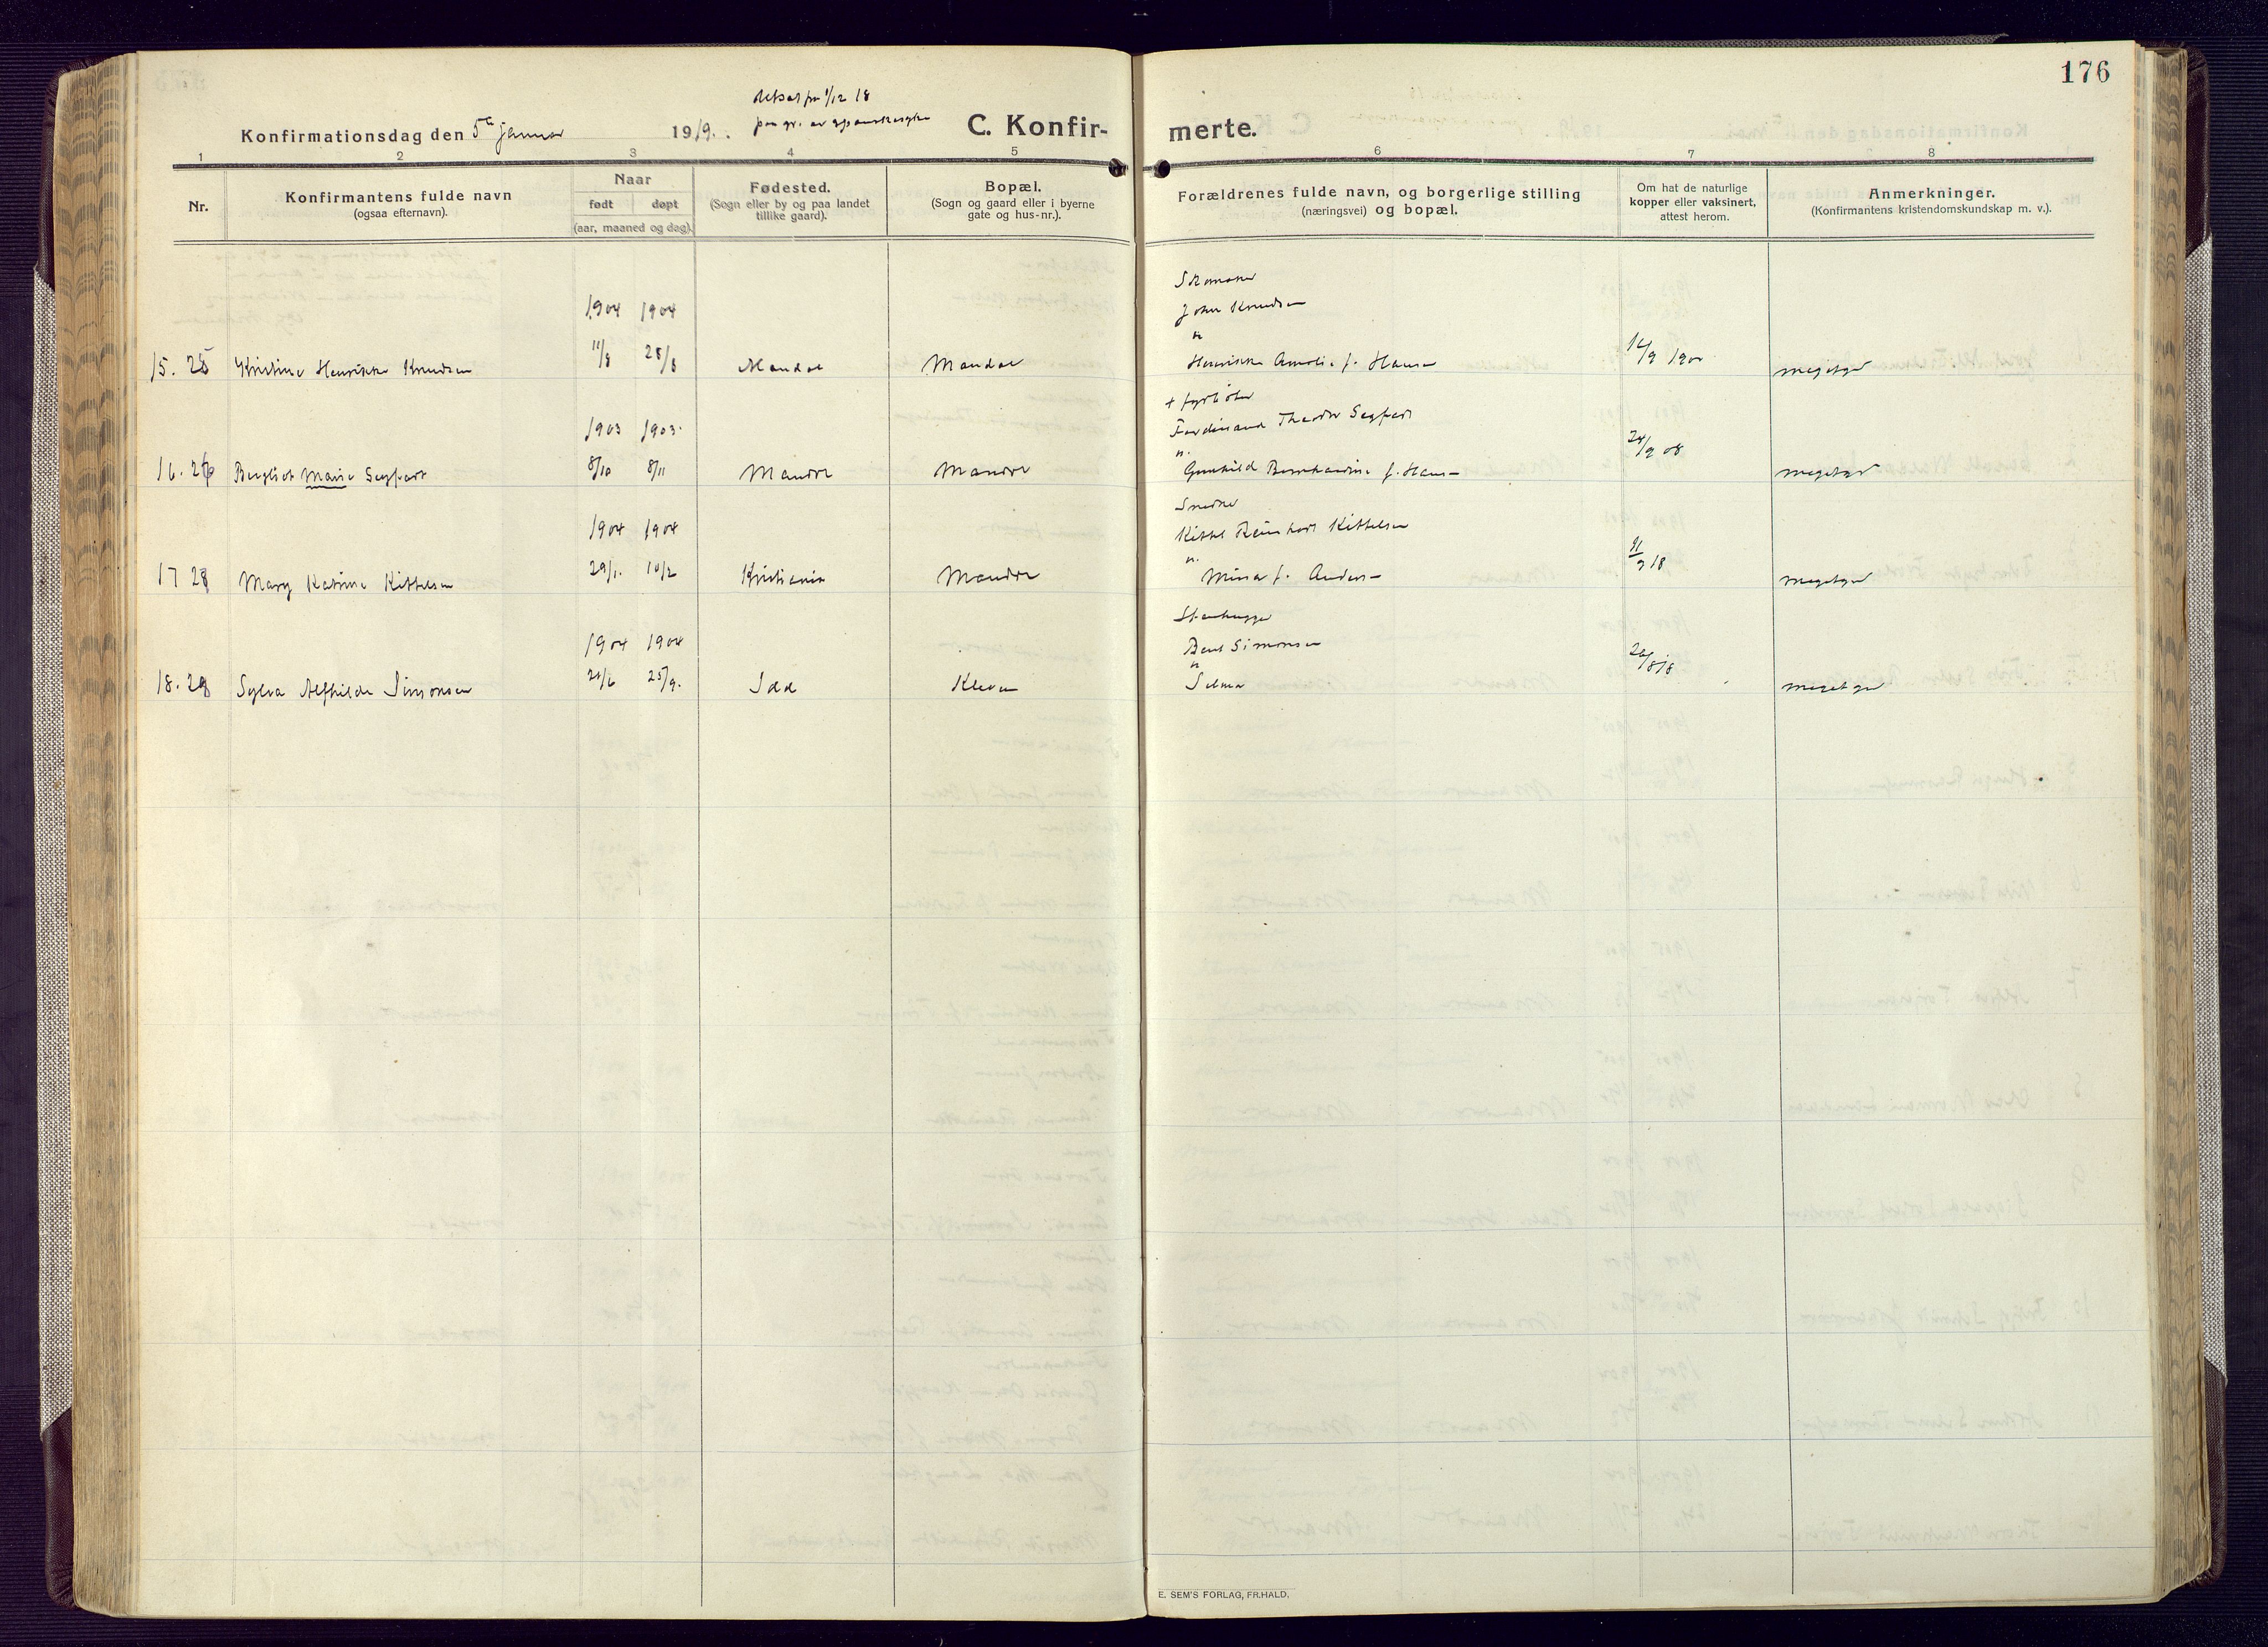 176
utsat fra 1/12 18
Konfirmationsdag den 5te januar 1919. paa gr. av spanskesyke
C. Konfir-
merte.
1 2 3 4 5
6 7 8
Nr.
Konfirmantens fulde navn
(ogsaa efternavn).
Naar
født døpt
(aar, maaned og dag).
Fødested.
(Sogn eller by og paa landet
tillike gaard).
Bopæl.
(Sogn og gaard eller i byerne
gate og hus-nr.).
Forældrenes fulde navn, og borgerlige stilling
(næringsvei) og bopæl.
Om hat de naturlige
kopper eller vaksinert,
attest herom.
Anmerkninger.
(Konfirmantens kristendomskundskap m. v.).
Skomaker
1904 1904
John Knudsen
"
15. 25 Kristine Henrikke Knudsen 11/8 28/8 Mandal Mandal
Henrikke Amalie f. Hansen
meget gr
+ fyrbøter
1903 1903.
Ferdinand Theodor Segfart
n.
16. 26 Bergliot Marie Segfart 8/10 8/11 Mandal Mandal
Gunhild Bernhardine f. Hans–
24/9 08
meget gr
Snedker
1904 1904
Kittel Reinhart Kittelsen
n.
17 28 Mary Katrine Kittelsen 29/1. 10/2 Kristiania Mandal
Mina f. Anders–
9 18
meget gr
Stenhugger
1904 1904
Bent Simonsen
"
18. 29 Sylva Alfhilde Simonsen 25/9. Idd Kleven
Selma
8 18
meget gr
E. SEM'S FORLAG, FR.HALD.